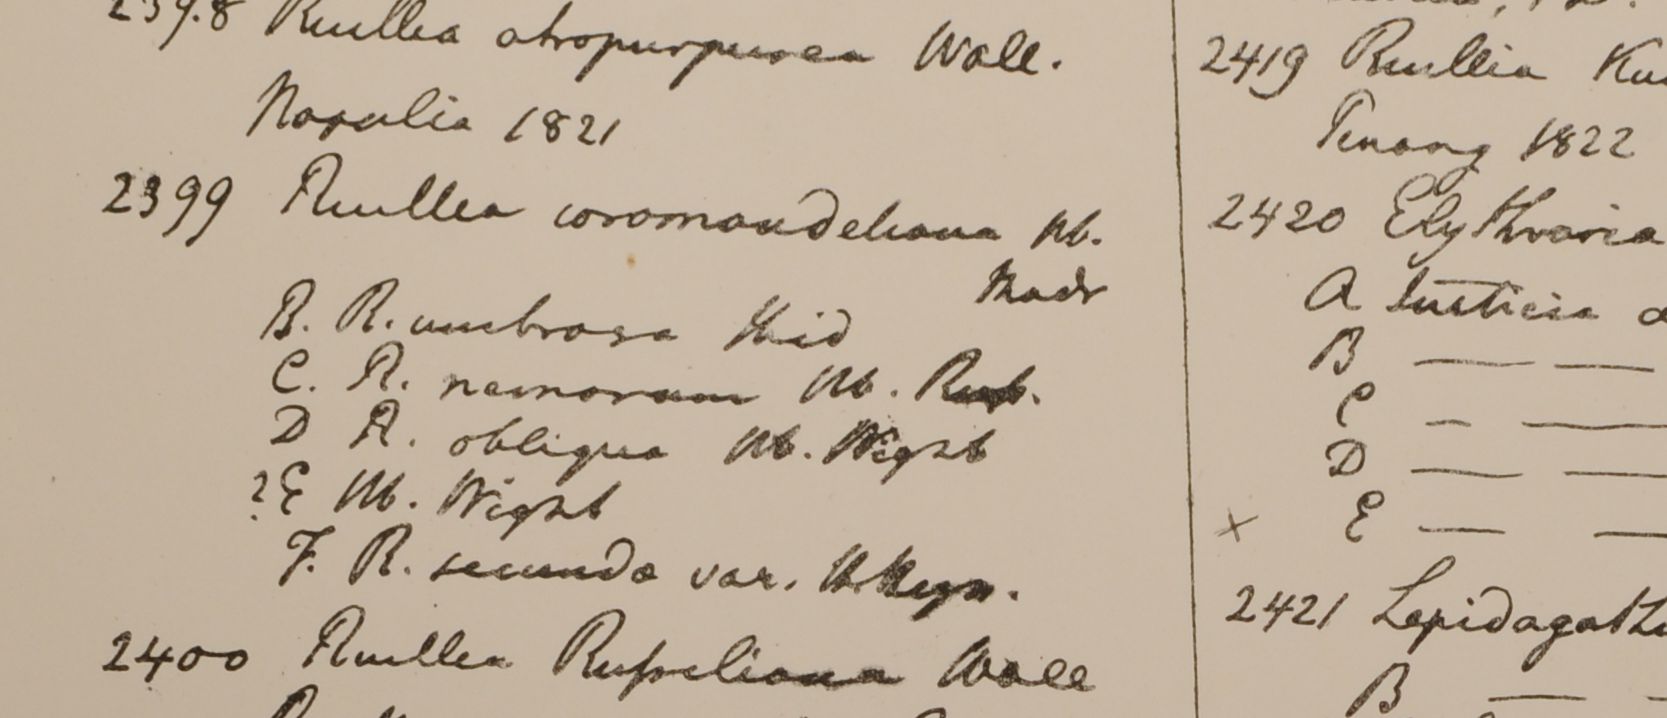 2398 Ruellia atropurpurea Wall.
Napalia 1821
2399 Ruellia coromandeliana Hb.
Madr
B. R. umbrosa Ibid
C. R. nemorum Hb.
D R. obliqua Hb. Wight
? E Hb. Wight
F. R. secunda var.
2400 Ruellia Russeliana Wall
2419 Ruellia
Penang 1822
2420 Elytraria
A Justicia
B — —
C — —
D — —
x E — —
2421
B —